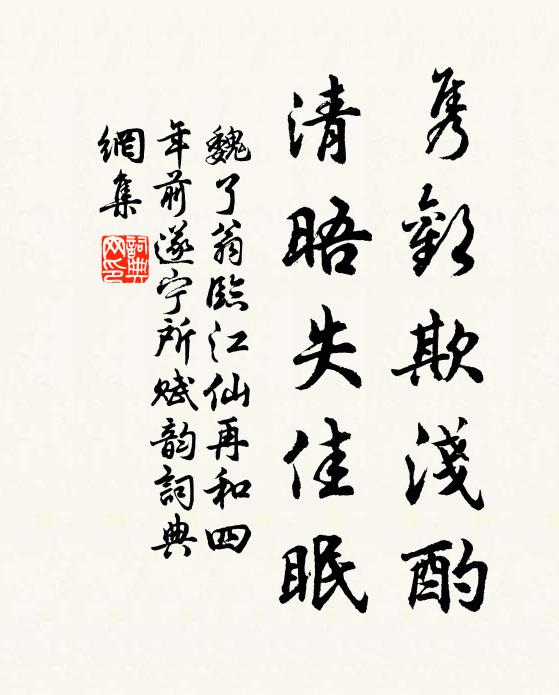 隽歡欺淺酌
清晤失佳眠
魏了翁臨江仙再和四
年前遂宁所赋韵詞典
網集
詞典
网印